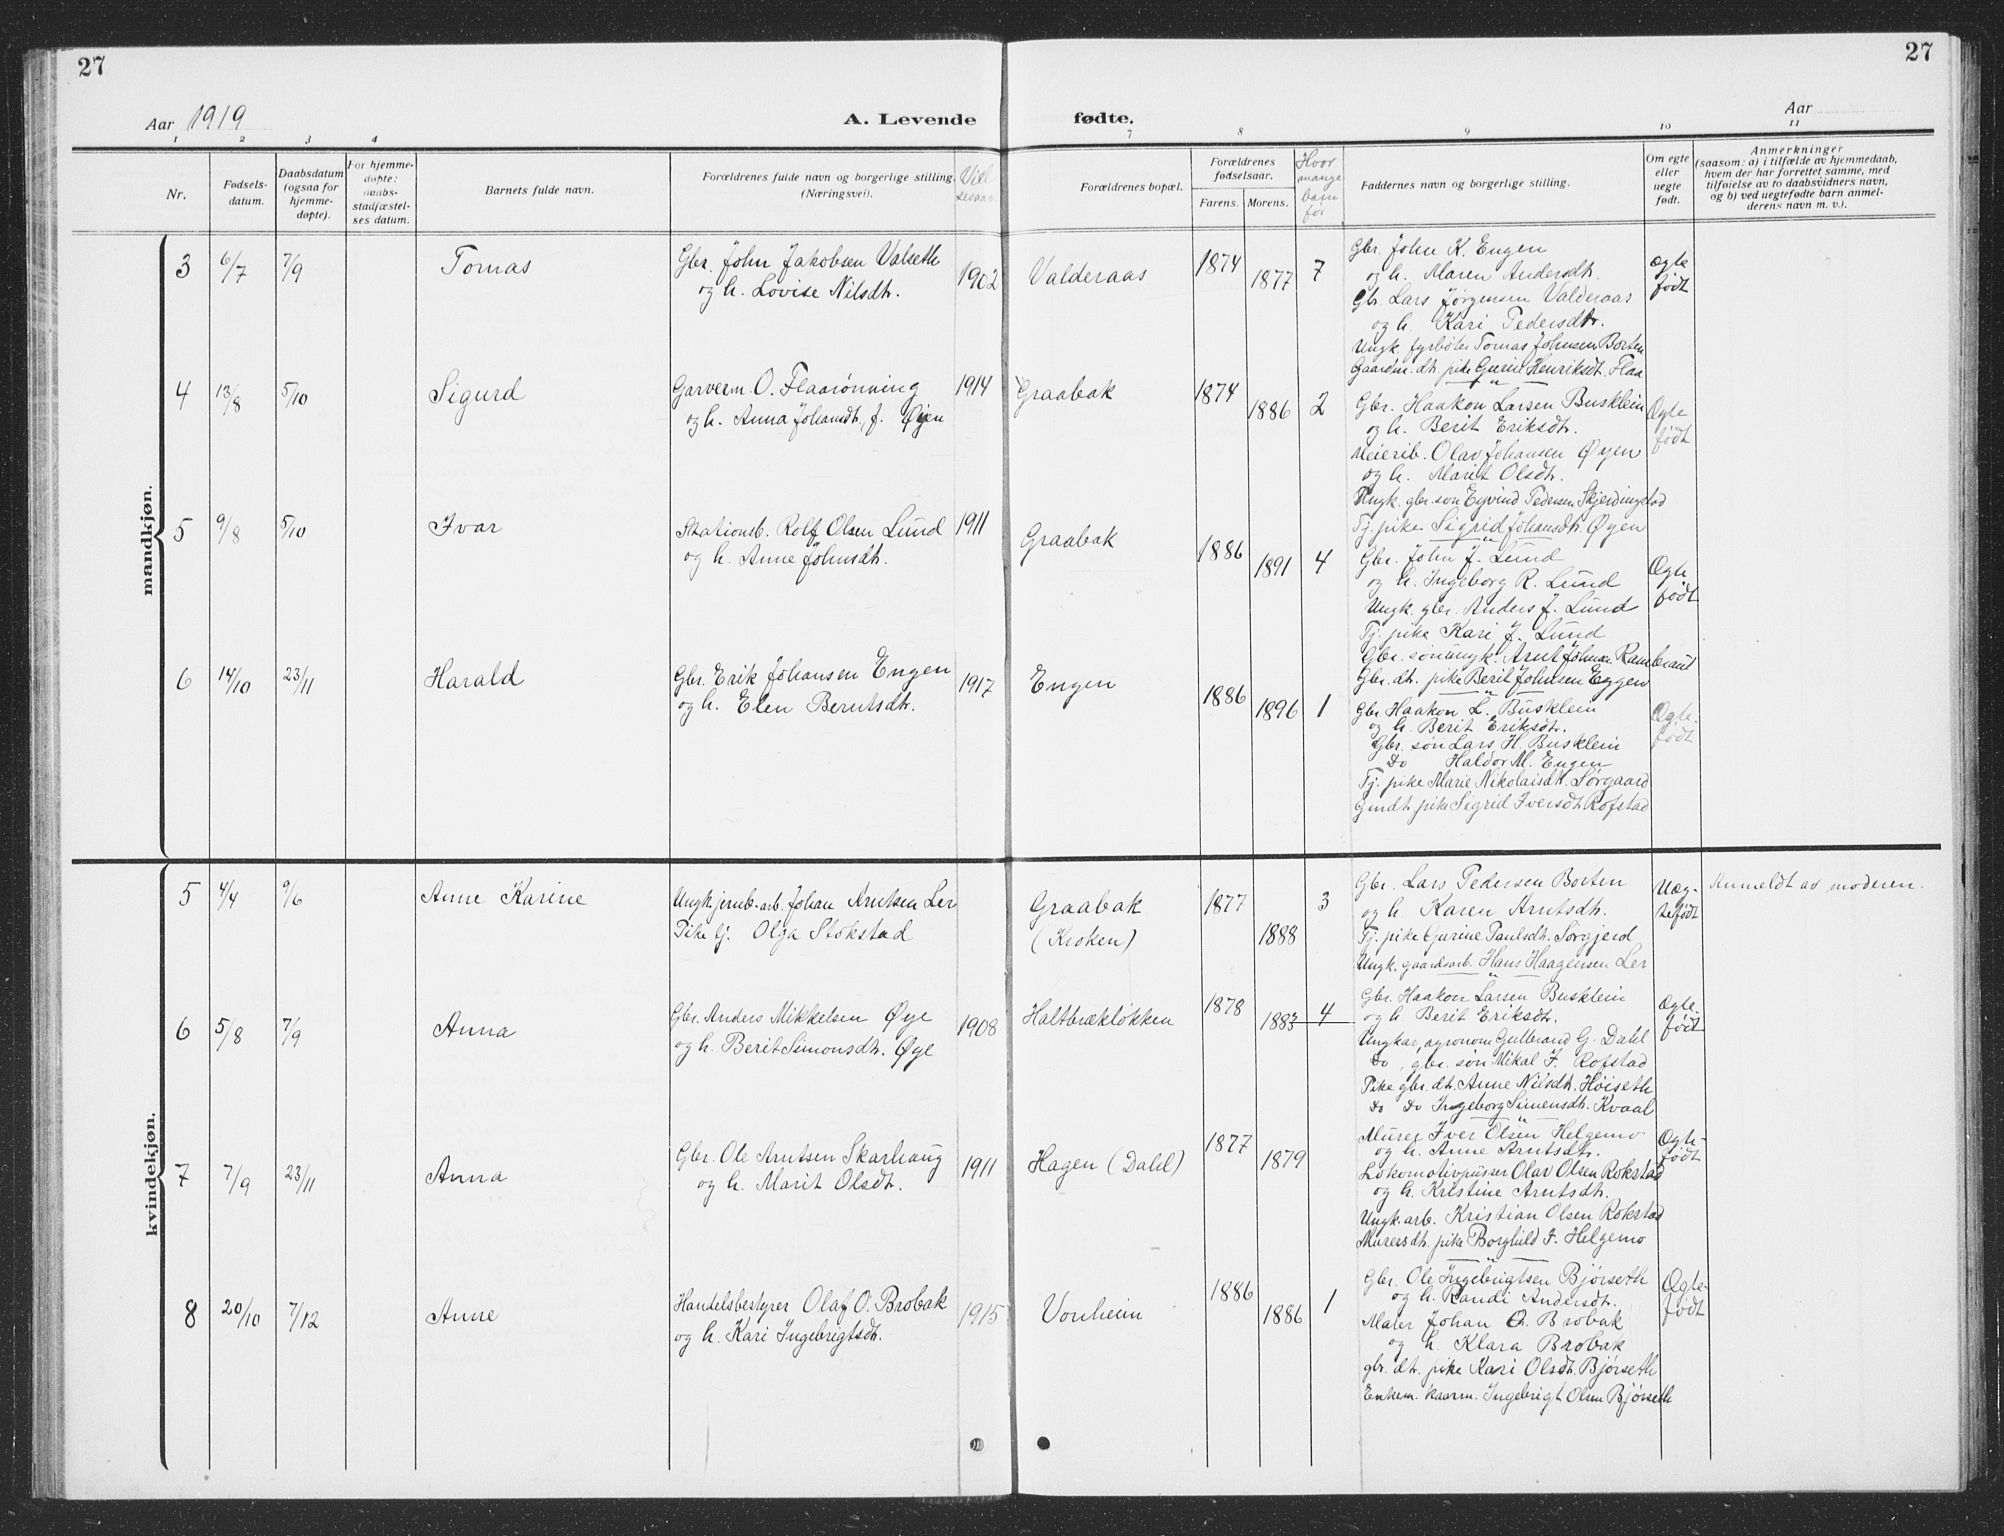 27
27
Aar 1919
A. Levende
fødte.
Aar
1 2 3 4 7 8 9 10 11
Nr.
Fødsels-
datum.
Daabsdatum
(ogsaa for
hjemme-
døpte).
For hjemme-
døpte:
daabs-
stadfæstel-
ses datum.
Barnets fulde navn.
Forældrenes fulde navn og borgerlige stilling.
(Næringsvei).
Viel
sesaar.
Forældrenes bopæl.
Forældrenes
fødselsaar.
Farens. Morens.
Hvor
mange
barn
før
Faddernes navn og borgerlige stilling.
Om egte
eller
uegte
født.
Anmerkninger
(saasom: a) i tilfælde av hjemmedaab,
hvem der har forrettet samme, med
tilføielse av to daabsvidners navn,
og b) ved uegtefødte barn anmel-
derens navn m. v.).
mandkjøn.
3 6/7 7/9 Tomas
Gbr. John Jakobsen Valseth
og h. Lovise Nilsdtr.
1902 Valderaas 1874 1877 7
Gbr. John K. Engen
og h. Maren Andersdtr.
Gbr. Lars Jørgensen Valderaas
og h. Kari Pedersdtr.
Ungk. fyrbøter Tomas Johnsen Borten
Gaardm. dt. pike Gurine Henriksdt. Flaa
Ægte
født
4 13/8 5/10 Sigurd
Garverm. O. Flaarønning
og h. Anna Johansdtr. f. Øyen
1914 Graabak 1874 1886 2
Gbr. Haakon Larsen Busklein
og h. Berit Eriksdtr.
Meierib. Olav Johansen Øyen
og h. Marit Olsdtr.
Ungk. gbr. søn Eyvind Pedersen Skjerdingstad
Tj. pike Sigrid Johansdtr. Øyen
Ægte
født
5 9/8 5/10 Ivar
Stationsb. Rolf Olsen Lund
og h. Anne Johnsdtr.
1911 Graabak 1886 1891 4
Gbr. John J. Lund
og h. Ingeborg R. Lund
Ungk. gbr. Anders J. Lund
Tj. pike Kari J. Lund
Gbr. søn ungk. Arnt Johnsen Rambraut
Gbr. dt. pike Berit Johnsen Eggen
Ægte
født
6 14/10 23/11 Harald
Gbr. Erik Johansen Engen
og h. Elen Berntsdtr.
1917 Engen 1886 1896 1
Gbr. Haakon L. Busklein
og h. Berit Eriksdtr.
Gbr. søn Lars H. Busklein
Do Haldor M. Engen
Tj. pike Marie Nikolaisdt. Sørgaard
Gmdt. pike Sigrid Iversdt. Rofstad
Ægte-
født
kvindekjøn.
5 4/4 9/6 Anne Karine
Ungk. jernb. arb. Johan Arntsen Ler
Pike tj. Olga Stokstad
Graabak
(Kroken)
1877 1888 3
Gbr. Lars Pedersen Borten
og h. Karen Arntsdtr.
Tj. pike Gurine Paulsdtr. Sørgjerd
Ungk. gaardsarb. Hans Haagensen Ler
Uæg-
tefødt
Anmeldt av moderen.
6 5/8 7/9 Anna
Gbr. Anders Mikkelsen Øye
og h. Berit Simonsdtr. Øye
1908 Haltbrækløkken 1878 1883 4
Gbr. Haakon Larsen Busklein
og h. Berit Eriksdtr.
Ungkar, agronom Gulbrand G. Dahl
Do, gbr. søn Mikal F. Rofstad
Pike gbr. dt. Anne Nilsdtr. Høiseth
Do Do Ingeborg Simensdtr. Kvaal
Ægte-
født
7 7/9 23/11 Anna
Gbr. Ole Arntsen Skarhaug
og h. Marit Olsdtr.
1911 Hagen (Dahl) 1877 1879
Murer Iver Olsen Helgemo
og h. Anne Arntsdtr.
Lokomotivpusser Olav Olsen Rokstad
og h. Kristine Arntsdtr.
Ungk. arb. Kristian Olsen Rokstad
Murersdt. pike Borghild I. Helgemo
Ægte-
født
8 20/10 7/12 Anne
Handelsbestyrer Olaf O. Brobak
og h. Kari Ingebrigtsdtr.
1915 Vonheim 1886 1886 1
Gbr. Ole Ingebrigtsen Bjørseth
og h. Randi Andersdt.
Maler Johan O. Brobak
og h. Klara Brobak
gbr. dt. pike Kari Olsdt. Bjørseth
Enkem. kaarm. Ingebrigt Olsen Bjørseth
Ægte-
født